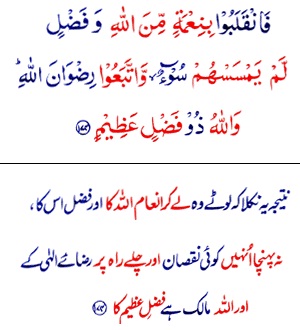 فَانْقَلَبُوْا بِنِعْمَةٍ مِّنَ اللّٰهِ وَ فَضْلٍ
لَّمْ یَمْسَسْهُمْ سُوْٓءٌ ۙ وَّ اتَّبَعُوْا رِضْوَانَ اللّٰهِ ؕ
وَاللّٰهُ ذُوْ فَضْلٍ عَظِیْمٍ ﴿۱۷۴﴾
نتیجہ یہ نکلا کہ لوٹے وہ لے کر انعام اللہ کا اور فضل اس کا ،
نہ پہنچا اُنہیں کوئی نقصان اور چلے راہ پر رضائے الٰہی کے
اور اللہ مالک ہے فضلِ عظیم کا ﴿۱۷۴﴾